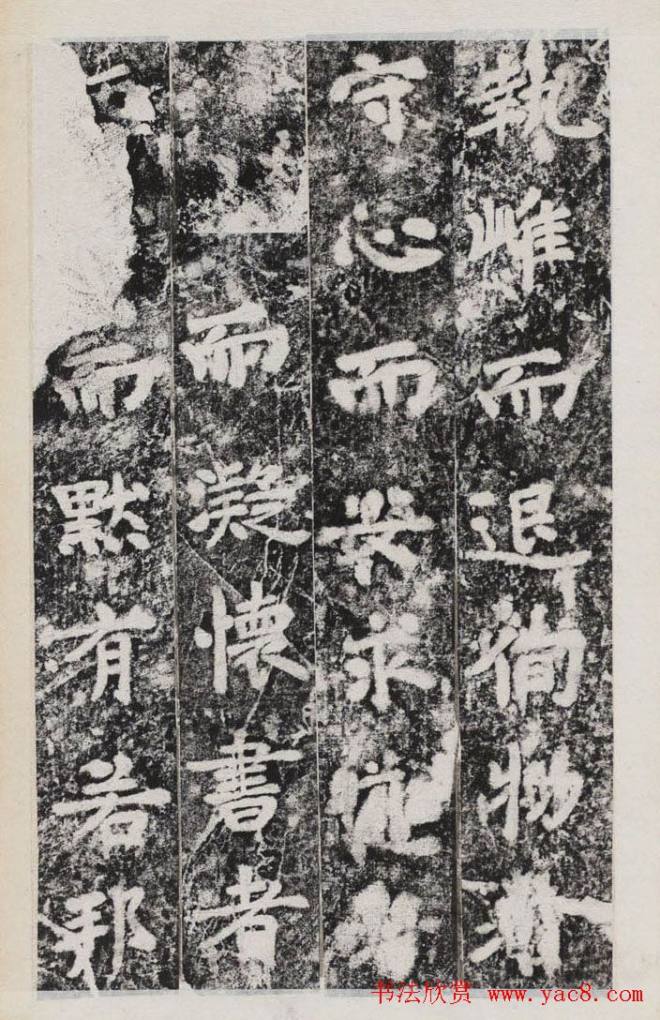 執雌而退徇物
守心而求
而凝懷書者
而默有若邪
书法欣赏 www.yac8.com